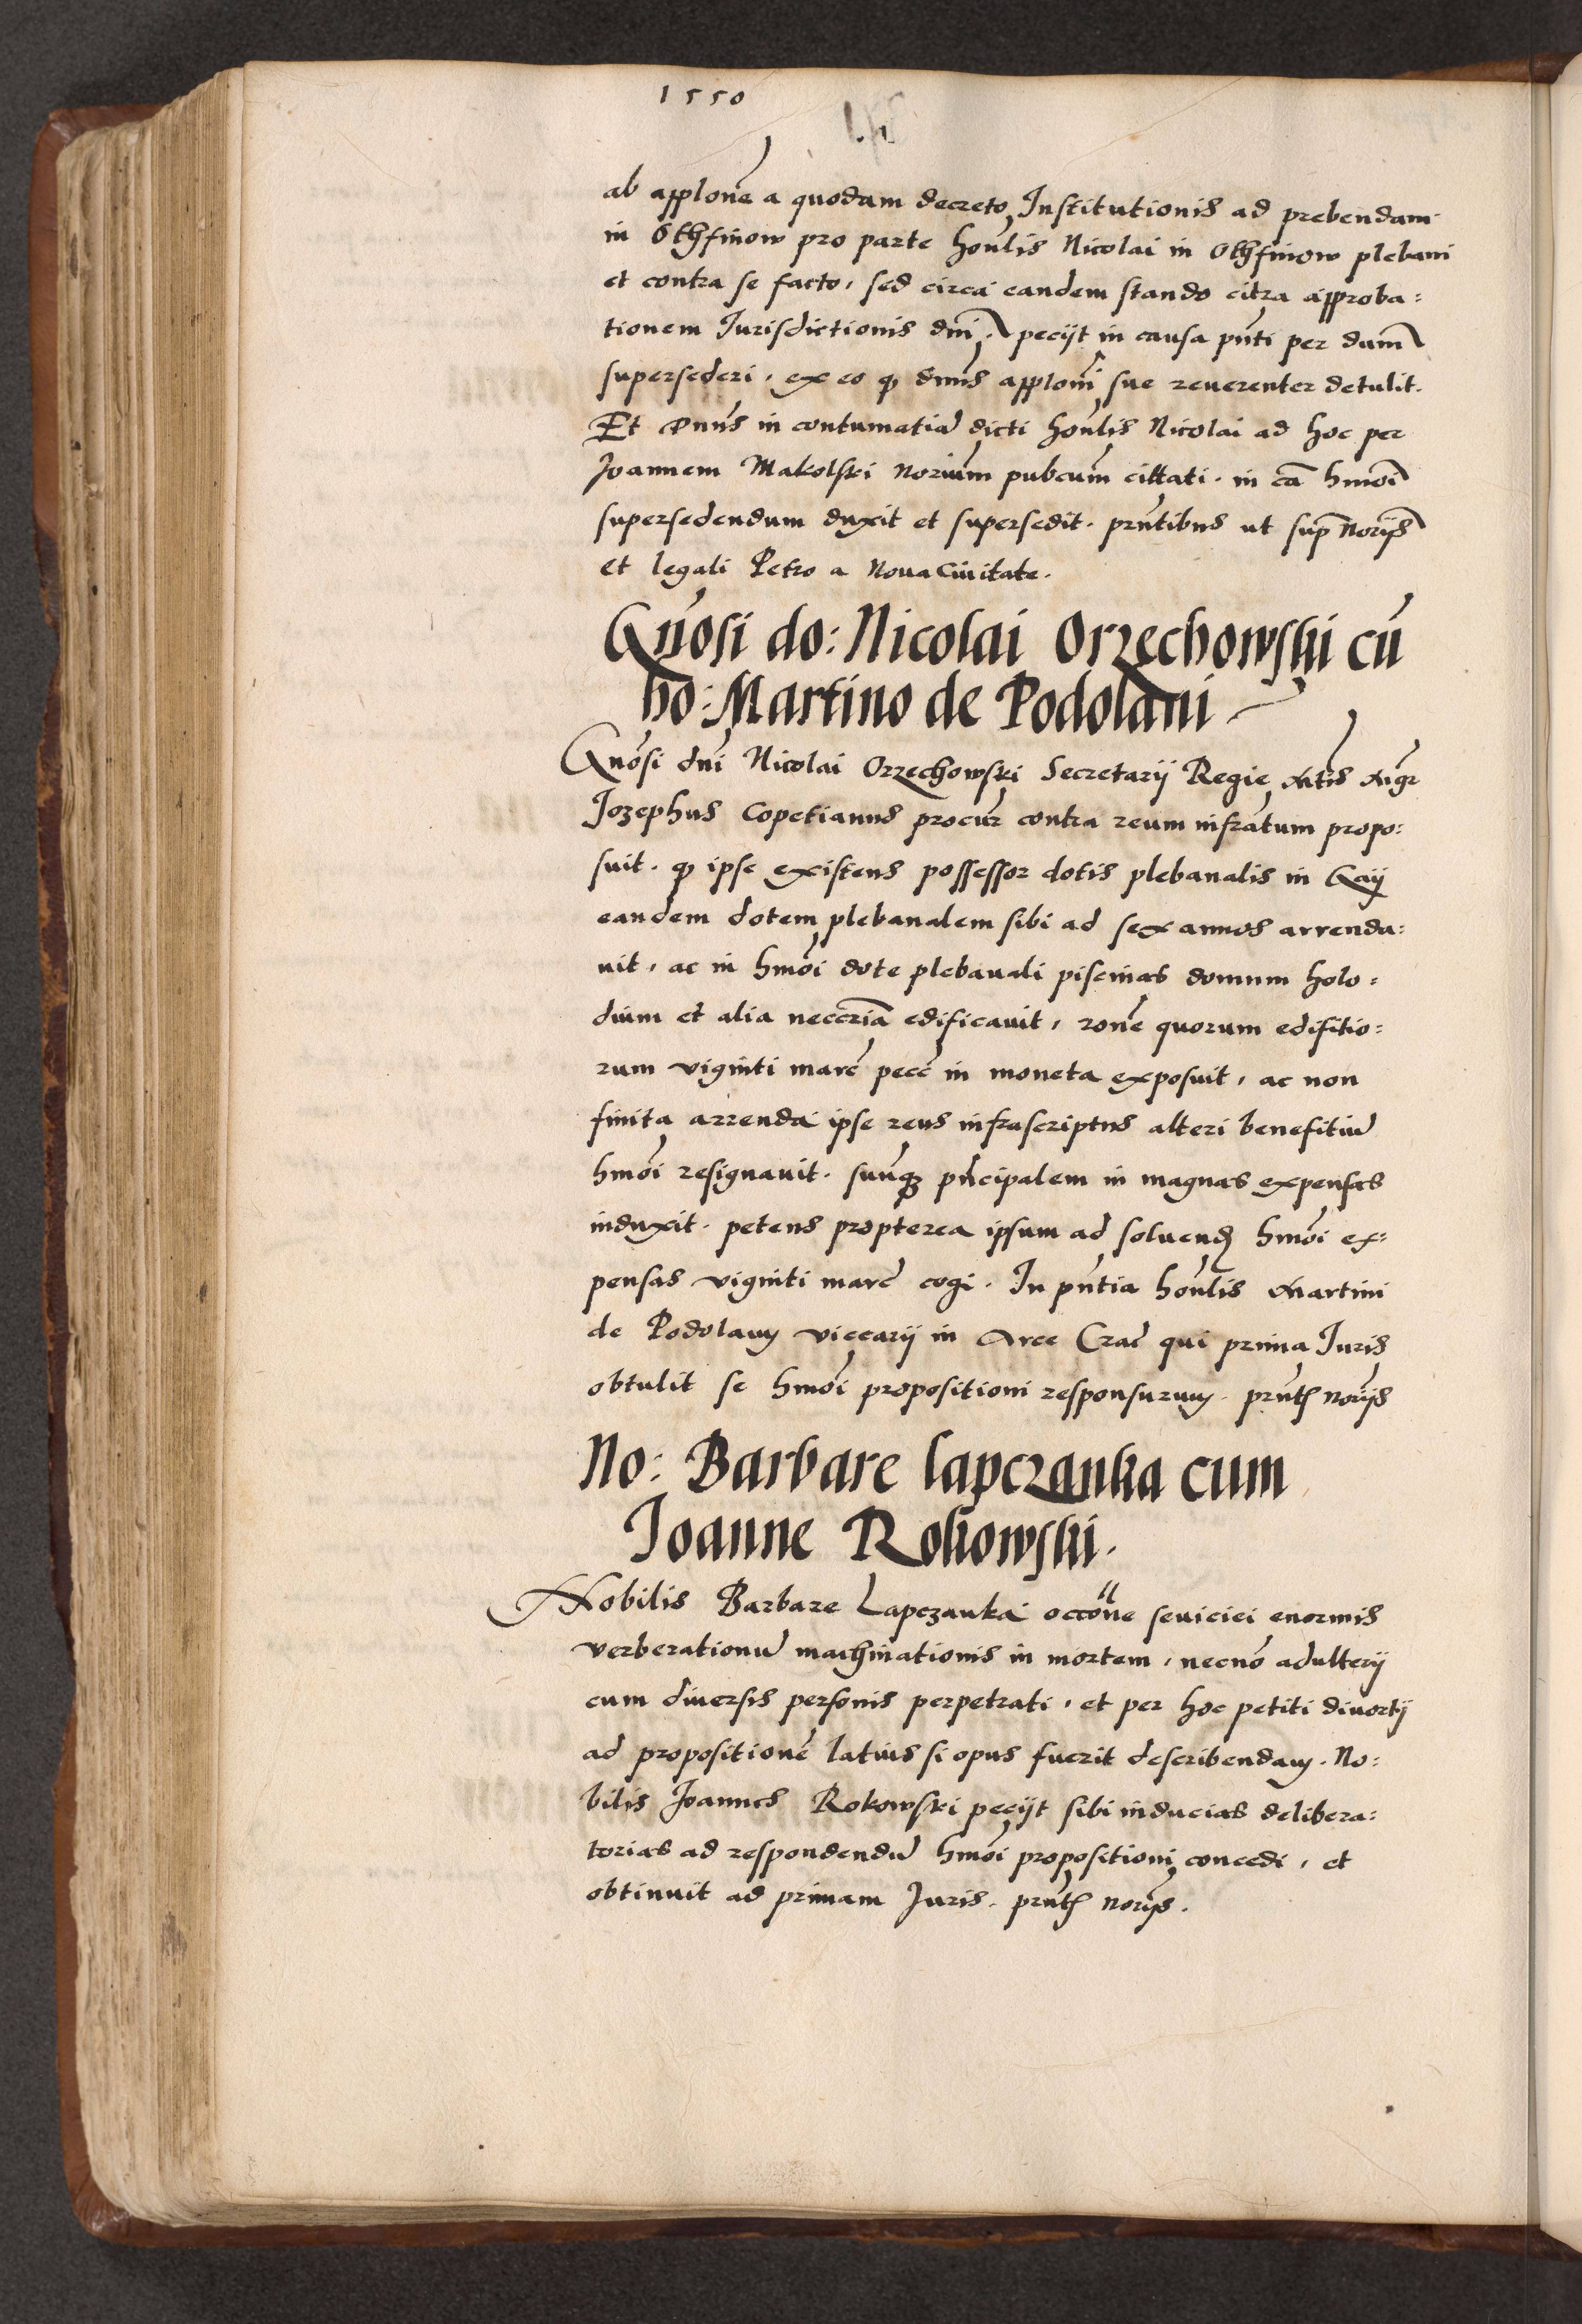 1550
ab applone a quodam decreto Institutionis ad prebendam
in Othfinow pro parte honlis Nicolai in Othfinow plebani
et contra se facto, sed circa eandem stando citra approba:
tionem Jurisdictionis dni. peciit in causa pnti per dnum
supersederi, ex eo q dnus apploni sue reuerenter detulit.
Et Dnus in contumatia dicti honlis Nicolai ad hoc per
Joannem Makolski norium pubcum cittati. in ca hmoi
supersedendum duxit et supersedit. pntibus ut supra noriis
et legali Petro a Noua Ciuitate.
Gnosi do: Nicolai Orzechowski cu
ho: Martino de Podolani
Gnosi dni Nicolai Orzechowski Secretarij Regie Mtis Mgr
Jozephus Copetianus procur contra reum infratum propo:
suit. q ipse existens possessor dotis plebanalis in Gaij
eandem dotem plebanalem sibi ad sex annos arrenda:
uit, ac in hmoi dote plebanali piscinas domum holo:
dium et alia neccria edificauit, rone quorum edifitio:
rum viginti marc pecc in moneta exposuit, ac non
finita arrenda ipse reus infrascriptus alteri benefitiu
hmoi resignauit. suuqz pncipalem in magnas expensas
induxit. petens propterea ipsum ad soluend hmoi ex:
pensas viginti marc cogi. In pntia honlis Martini
de Podolany viccarij in Arce Crac qui prima Juris
obtulit se hmoi propositioni responsurum. pntb noriis
No: Barbare Lapczanka cum
Joanne Rokowski.
Nobilis Barbare Lapczanka occone seuiciei enormis
verberationu machinationis in mortem, necno adulterij
cum diuersis personis perpetrati, et per hoc petiti diuortij
ad propositione latius si opus fuerit describendam. No:
bilis Joannes Rokowski peciit sibi inducias delibera:
torias ad respondendu hmoi propositioni concedi, et
obtinuit ad primam Juris. pntb noriis.